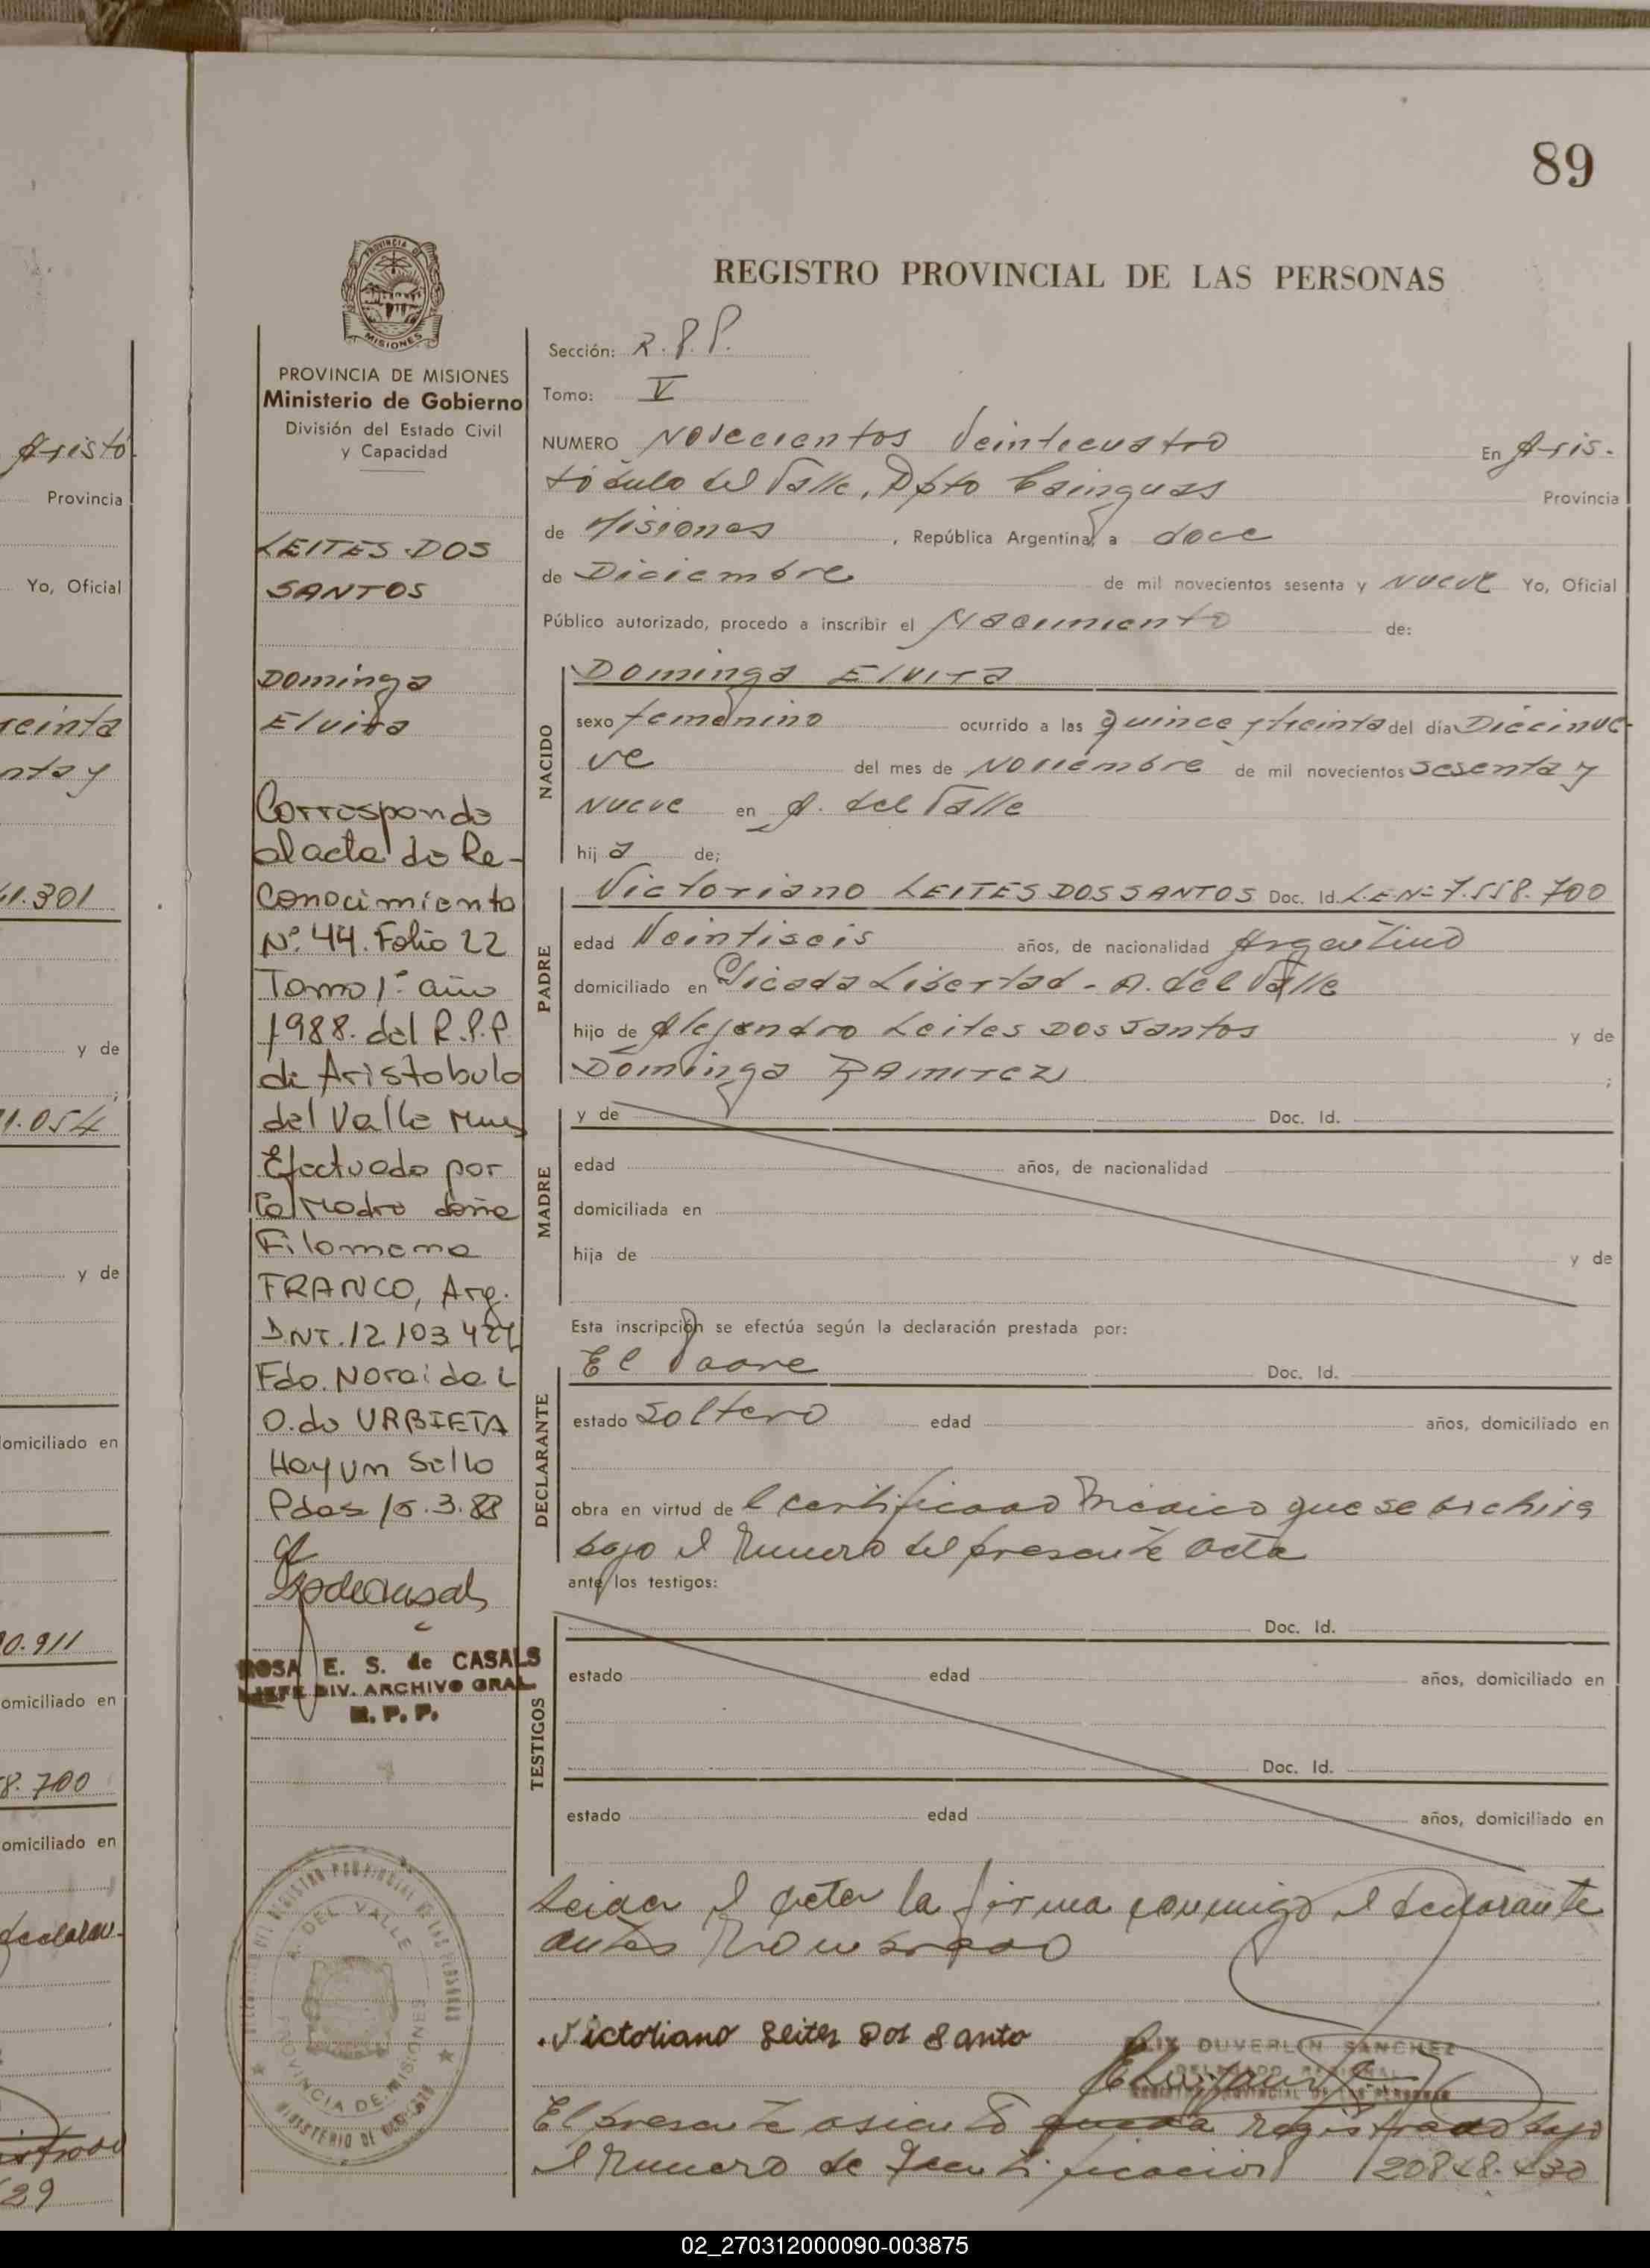 89
REGISTRO PROVINCIAL DE LAS PERSONAS
PROVINCIA DE MISIONES
Ministerio de Gobierno
División del Estado Civil
y Capacidad
LEITES DOS
SANTOS
Dominga
Elvira
Corresponde
al acta de Re-
conocimiento
Nº 44. Folio 22
Tomo 1º año
1988. del R.P.P.
de Aristobulo
del Valle Mnes
Efectuado por
la Madre doña
Filomena
FRANCO, Arg.
D.N.I. 12.103.
Fdo. Noraida L
O. de URBIETA
Hay un Sello
Pdas 15.3.88
ROSA E. S. de CASALS
JEFE DIV. ARCHIVO GRAL
R. P. P.
A. DEL VALLE
PROVINCIA DE MISIONES
Sección: R.P.P.
Tomo: V
NUMERO Novecientos Veinticuatro En Aris-
tóbulo del Valle, Dpto Cainguas Provincia
de Misiones, República Argentina, a doce
de Diciembre de mil novecientos sesenta y nueve Yo, Oficial
Público autorizado, procedo a inscribir el Nacimiento de:
NACIDO
Dominga Elvira
sexo femenino ocurrido a las quince y treinta del día Diecinue-
ve del mes de Noviembre de mil novecientos sesenta y
nueve en A. del Valle
hij a de;
PADRE
Victoriano LEITES DOS SANTOS Doc. Id. L.E.Nº 7.558.700
edad Veintiseis años, de nacionalidad Argentino
domiciliado en Picada Libertad - A. del Valle
hijo de Alejandro Leites Dos Santos y de
Dominga Ramirez ;
MADRE
y de Doc. Id.
edad años, de nacionalidad
domiciliada en
hija de y de
Esta inscripción se efectúa según la declaración prestada por:
DECLARANTE
El Padre Doc. Id.
estado soltero edad años, domiciliado en
obra en virtud de l certificado Médico que se archiva
bajo el Numero del presente acta
ante los testigos:
TESTIGOS
Doc. Id.
estado edad años, domiciliado en
Doc. Id.
estado edad años, domiciliado en
Leida el acta la firma conmigo el declarante
antes Nombrado
Victoriano Leites Dos Santo
DUVERLIN SANCHEZ
El presente asiento queda registrado bajo
el Numero de Identificacion
Aristó
Provincia
Yo, Oficial
reinta
nta y
1.301
y de
1.054
y de
omiciliado en
0.911
omiciliado en
8.700
omiciliado en
29
02_270312000090-003875